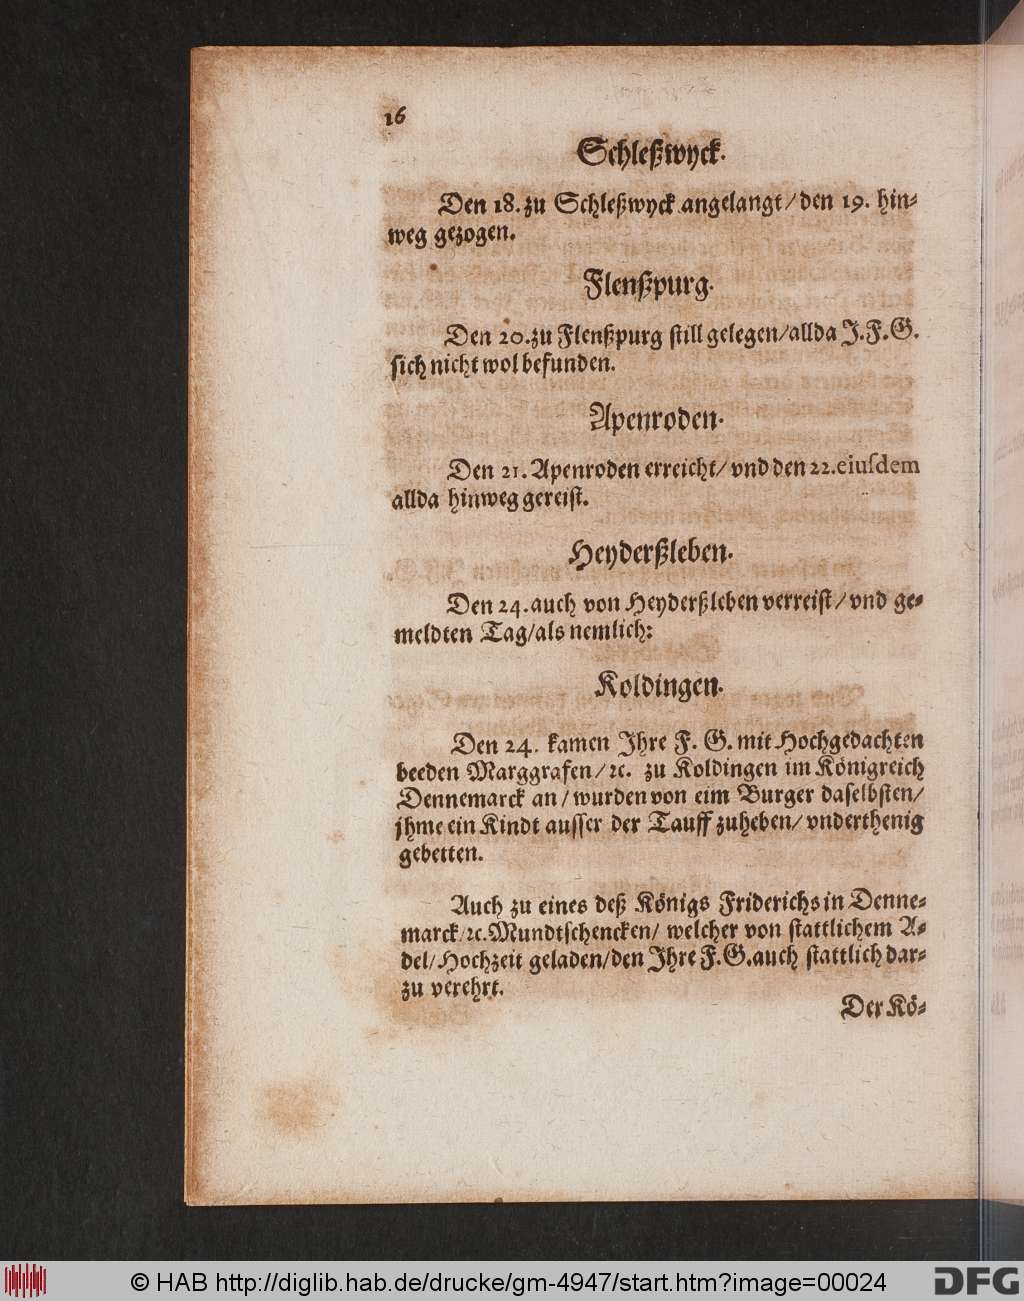 16
Schleßwyck.
Den 18. zu Schleßwyck angelangt / den 19. hin⸗
weg gezogen.
Flenßpurg.
Den 20. zu Flenßpurg still gelegen / allda J. F. G.
sich nicht wol befunden.
Apenroden.
Den 21. Apenroden erreicht / vnd den 22. eiuſdem
allda hinweg gereist.
Heyderßleben.
Den 24. auch von Heyderßleben verreist / vnd ge⸗
meldten Tag / als nemlich:
Koldingen.
Den 24. kamen Jhre F. G. mit Hochgedachten
beeden Marggrafen / ꝛc. zu Koldingen im Königreich
Dennemarck an / wurden von eim Burger daselbsten /
jhme ein Kindt ausser der Tauff zuheben / vnderthenig
gebetten.
Auch zu eines deß Königs Friderichs in Denne⸗
marck / ꝛc. Mundtschencken / welcher von stattlichem A⸗
del / Hochzeit geladen / den Jhre F. G. auch stattlich dar⸗
zu verehrt.
Der Kö⸗
© HAB http://diglib.hab.de/drucke/gm-4947/start.htm?image=00024 DFG